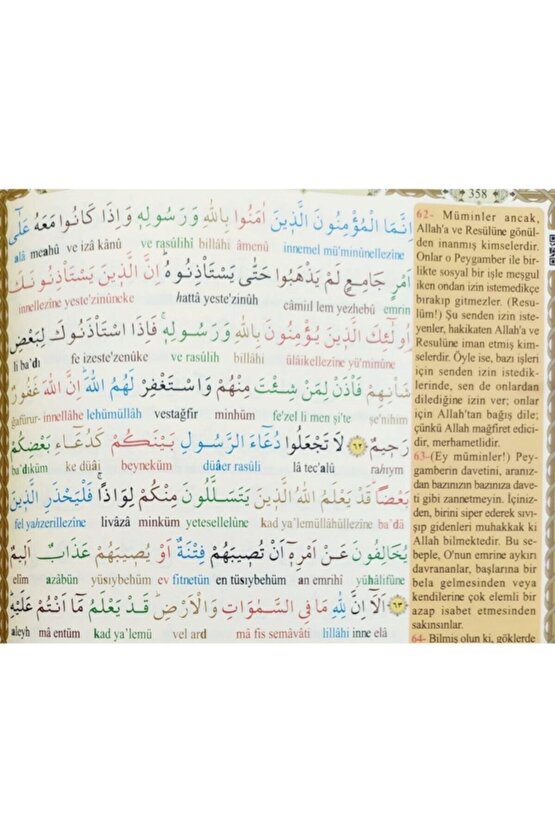 358
اِنَّمَا الْمُؤْمِنُونَ الَّذ۪ينَ اٰمَنُوا بِاللّٰهِ وَرَسُولِه۪ وَاِذَا كَانُوا مَعَهُ عَلٰٓى
alâ meahû ve izâ kânû ve rasûlihî billâhi âmenû innemel mü'minûnellezîne
اَمْرٍ جَامِعٍ لَمْ يَذْهَبُوا حَتّٰى يَسْتَأْذِنُوهُۜ اِنَّ الَّذ۪ينَ يَسْتَأْذِنُونَكَ
innellezîne yeste'zinûneke hattâ yeste'zinûh câmiıl lem yezhebû emrin
اُو۬لٰٓئِكَ الَّذ۪ينَ يُؤْمِنُونَ بِاللّٰهِ وَرَسُولِه۪ۚ فَاِذَا اسْتَأْذَنُوكَ لِبَعْضِ
li ba'dı fe izeste'zenûke ve rasulih billâhi ülâikellezîne yü'minûne
شَأْنِهِمْ فَأْذَنْ لِمَنْ شِئْتَ مِنْهُمْ وَاسْتَغْفِرْ لَهُمُ اللّٰهَۜ اِنَّ اللّٰهَ غَفُورٌ
ğafûrur- innellahe lehümüllâh vestağfir minhüm fe'zel li men şi'te şe'nihim
رَح۪يمٌ ﴿٦٢﴾ لَا تَجْعَلُوا دُعَٓاءَ الرَّسُولِ بَيْنَكُمْ كَدُعَٓاءِ بَعْضِكُمْ
ba'dıküm ke düâi beyneküm düâer rasûli lâ tec'alû rahıym
بَعْضًاۜ قَدْ يَعْلَمُ اللّٰهُ الَّذ۪ينَ يَتَسَلَّلُونَ مِنْكُمْ لِوَاذًاۚ فَلْيَحْذَرِ الَّذ۪ينَ
fel yahzerillezîne livâzâ minküm yetesellelûne kad ya'lemüllâhüllezîne ba'dâ
يُخَالِفُونَ عَنْ اَمْرِه۪ٓ اَنْ تُص۪يبَهُمْ فِتْنَةٌ اَوْ يُص۪يبَهُمْ عَذَابٌ اَل۪يمٌ
elîm azâbün yüsıybehüm ev fitnetün en tüsıybehüm an emrihî yühâlifûne
﴿٦٣﴾ اَلَٓا اِنَّ لِلّٰهِ مَا فِي السَّمٰوَاتِ وَالْاَرْضِۜ قَدْ يَعْلَمُ مَٓا اَنْتُمْ عَلَيْهِۜ
aleyh mâ entüm kad ya'lemü vel ard mâ fis semâvâti lillâhi inne elâ
62- Müminler ancak,
Allah'a ve Resülüne gönül-
den inanmış kimselerdir.
Onlar o Peygamber ile bir-
likte sosyal bir işle meşgul
iken ondan izin istemedikçe
bırakıp gitmezler. (Resu-
lüm!) Şu senden izin iste-
yenler, hakikaten Allah'a ve
Resulüne iman etmiş kim-
selerdir. Öyle ise, bazı işleri
için senden izin istedik-
lerinde, sen de onlardan
dilediğine izin ver; onlar
için Allah'tan bağış dile;
çünkü Allah mağfiret edici-
dir, merhametlidir.
63-(Ey müminler!) Pey-
gamberin davetini, aranız-
dan bazınızın bazınıza dave-
ti gibi zannetmeyin. İçiniz-
den, birini siper ederek sıvı-
şıp gidenleri muhakkak ki
Allah bilmektedir. Bu se-
beple, O'nun emrine aykırı
davrananlar, başlarına bir
bela gelmesinden veya
kendilerine çok elemli bir
azap isabet etmesinden
sakınsınlar.
64- Bilmiş olun ki, göklerde